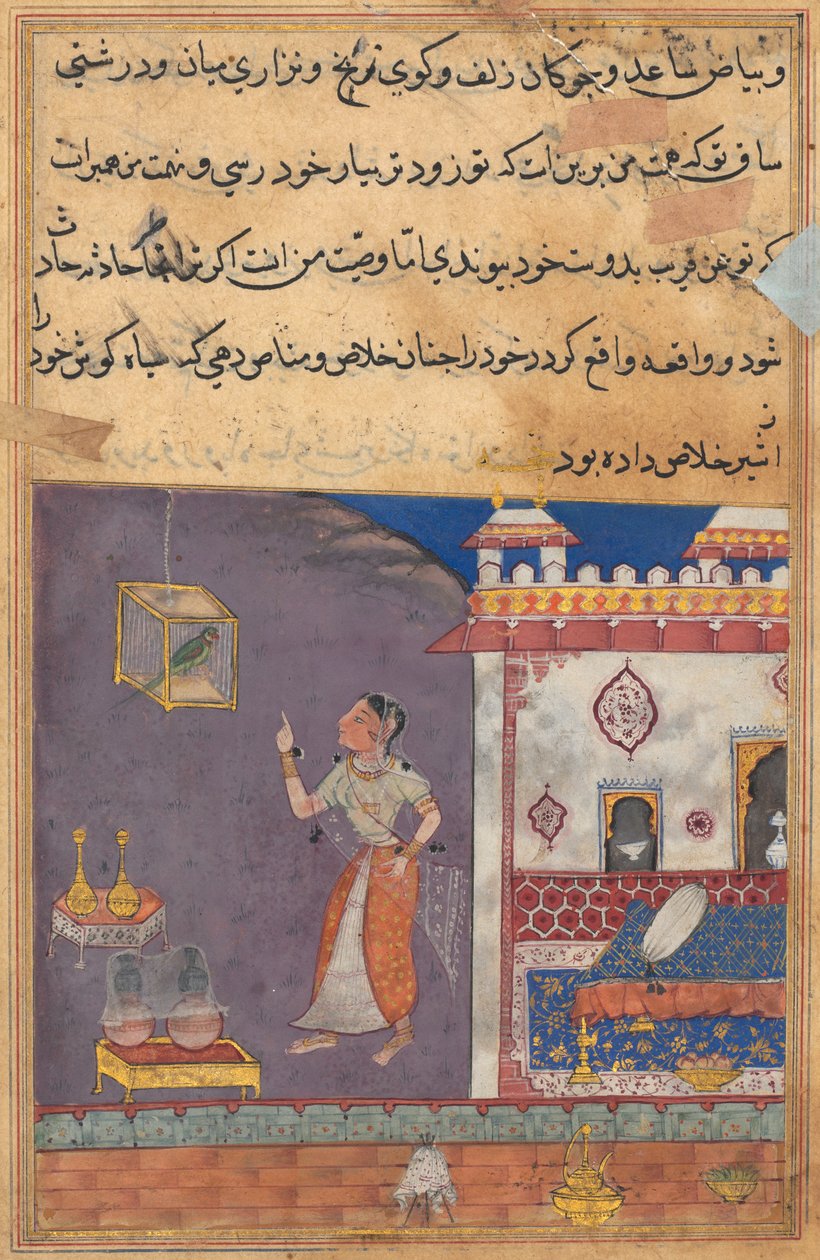 و بیاض ساعد و جوکان زلف و کوی زنخ و نزاری میان و درشتی
ساق تو که همت من برین است که تو زودتر بیار خود رسی و نهمت من همبرانست
که تو عن قریب بدوست خود بیوندی امّا وصیّت من انست اکر ترا انجا حادثه حادث
شود و واقعه واقع کردد خود را جنان خلاص و مناص دهی که سیاه کوش خود را
از شیر خلاص داده بود